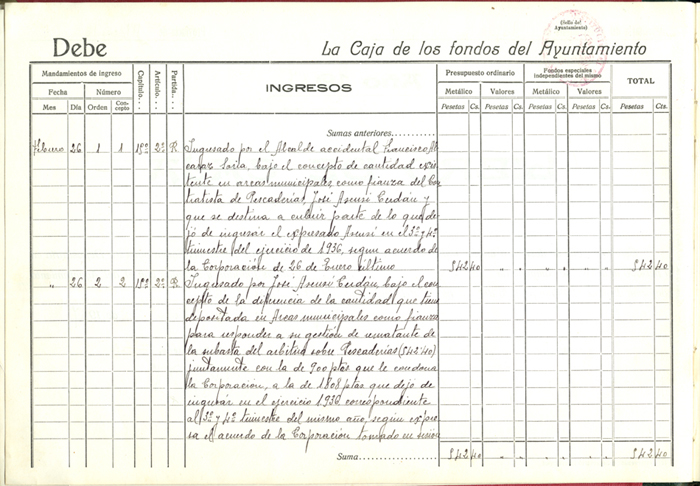 (Sello del Ayuntamiento)
Debe
La Caja de los fondos del Ayuntamiento
Mandamientos de ingreso
Capítulo. . .
Artículo. . .
Partida. . .
INGRESOS
Presupuesto ordinario
Fondos especiales independientes del mismo
TOTAL
Fecha
Número
Metálico
Valores
Metálico
Valores
Mes
Día
Orden
Concepto
Pesetas
Cs.
Pesetas
Cs.
Pesetas
Cs.
Pesetas
Cs.
Pesetas
Cts.
Sumas anteriores............
Febrero 26 1 1 18º 2º R. Ingresado por el Alcalde accidental Francisco Al
caraz Soria, bajo el concepto de cantidad exis
tente en arcas municipales como fianza del Con
tratista de Pescaderías, José Asensi Cerdán y
que se destina a cubrir parte de lo que de
jó de ingresar el expresado Asensi en el 3º y 4º
trimestre del ejercicio de 1936, segun acuerdo de
la Corporación de 26 de Enero último 542 40 " " " " " " 542 40
" 26 2 2 18º 2º R. Ingresado por José Asensi Cerdán, bajo el con
cepto de la diferencia de la cantidad que tiene
depositada en Arcas municipales como fianza
para responder a su gestión de rematante de
la subasta del arbitrio sobre Pescaderías (542'40)
juntamente con la de 900 ptas que le condona
la Corporación, a la de 1808 ptas que dejó de
ingresar en el ejercicio 1936 correspondiente
al 3º y 4º trimestre del mismo año, segun expre
sa el acuerdo de la Corporación tomado en sesión
Suma.................... 542 40 " " " " " " 542 40